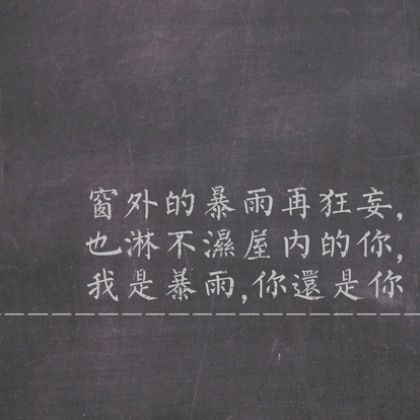 窗外的暴雨再狂妄,
也淋不濕屋內的你,
我是暴雨,你還是你